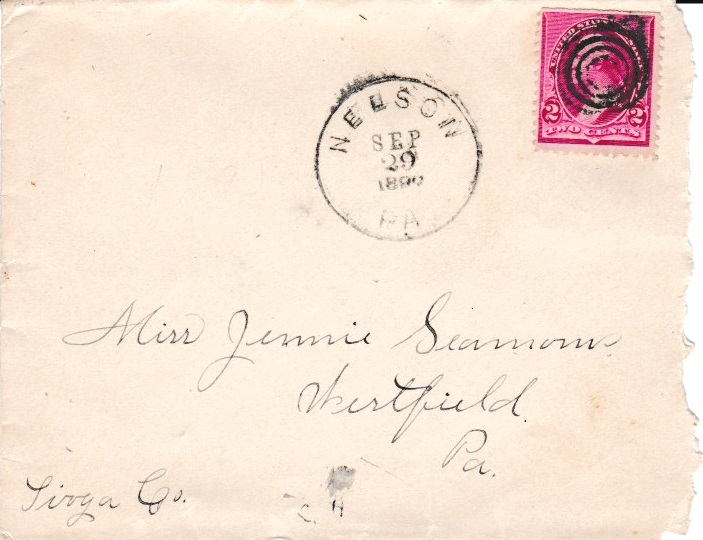 UNITED STATES
2 2
TWO CENTS
NELSON
SEP
29
PA
Miss Jennie Seamons
Westfield
Pa.
Tioga Co.